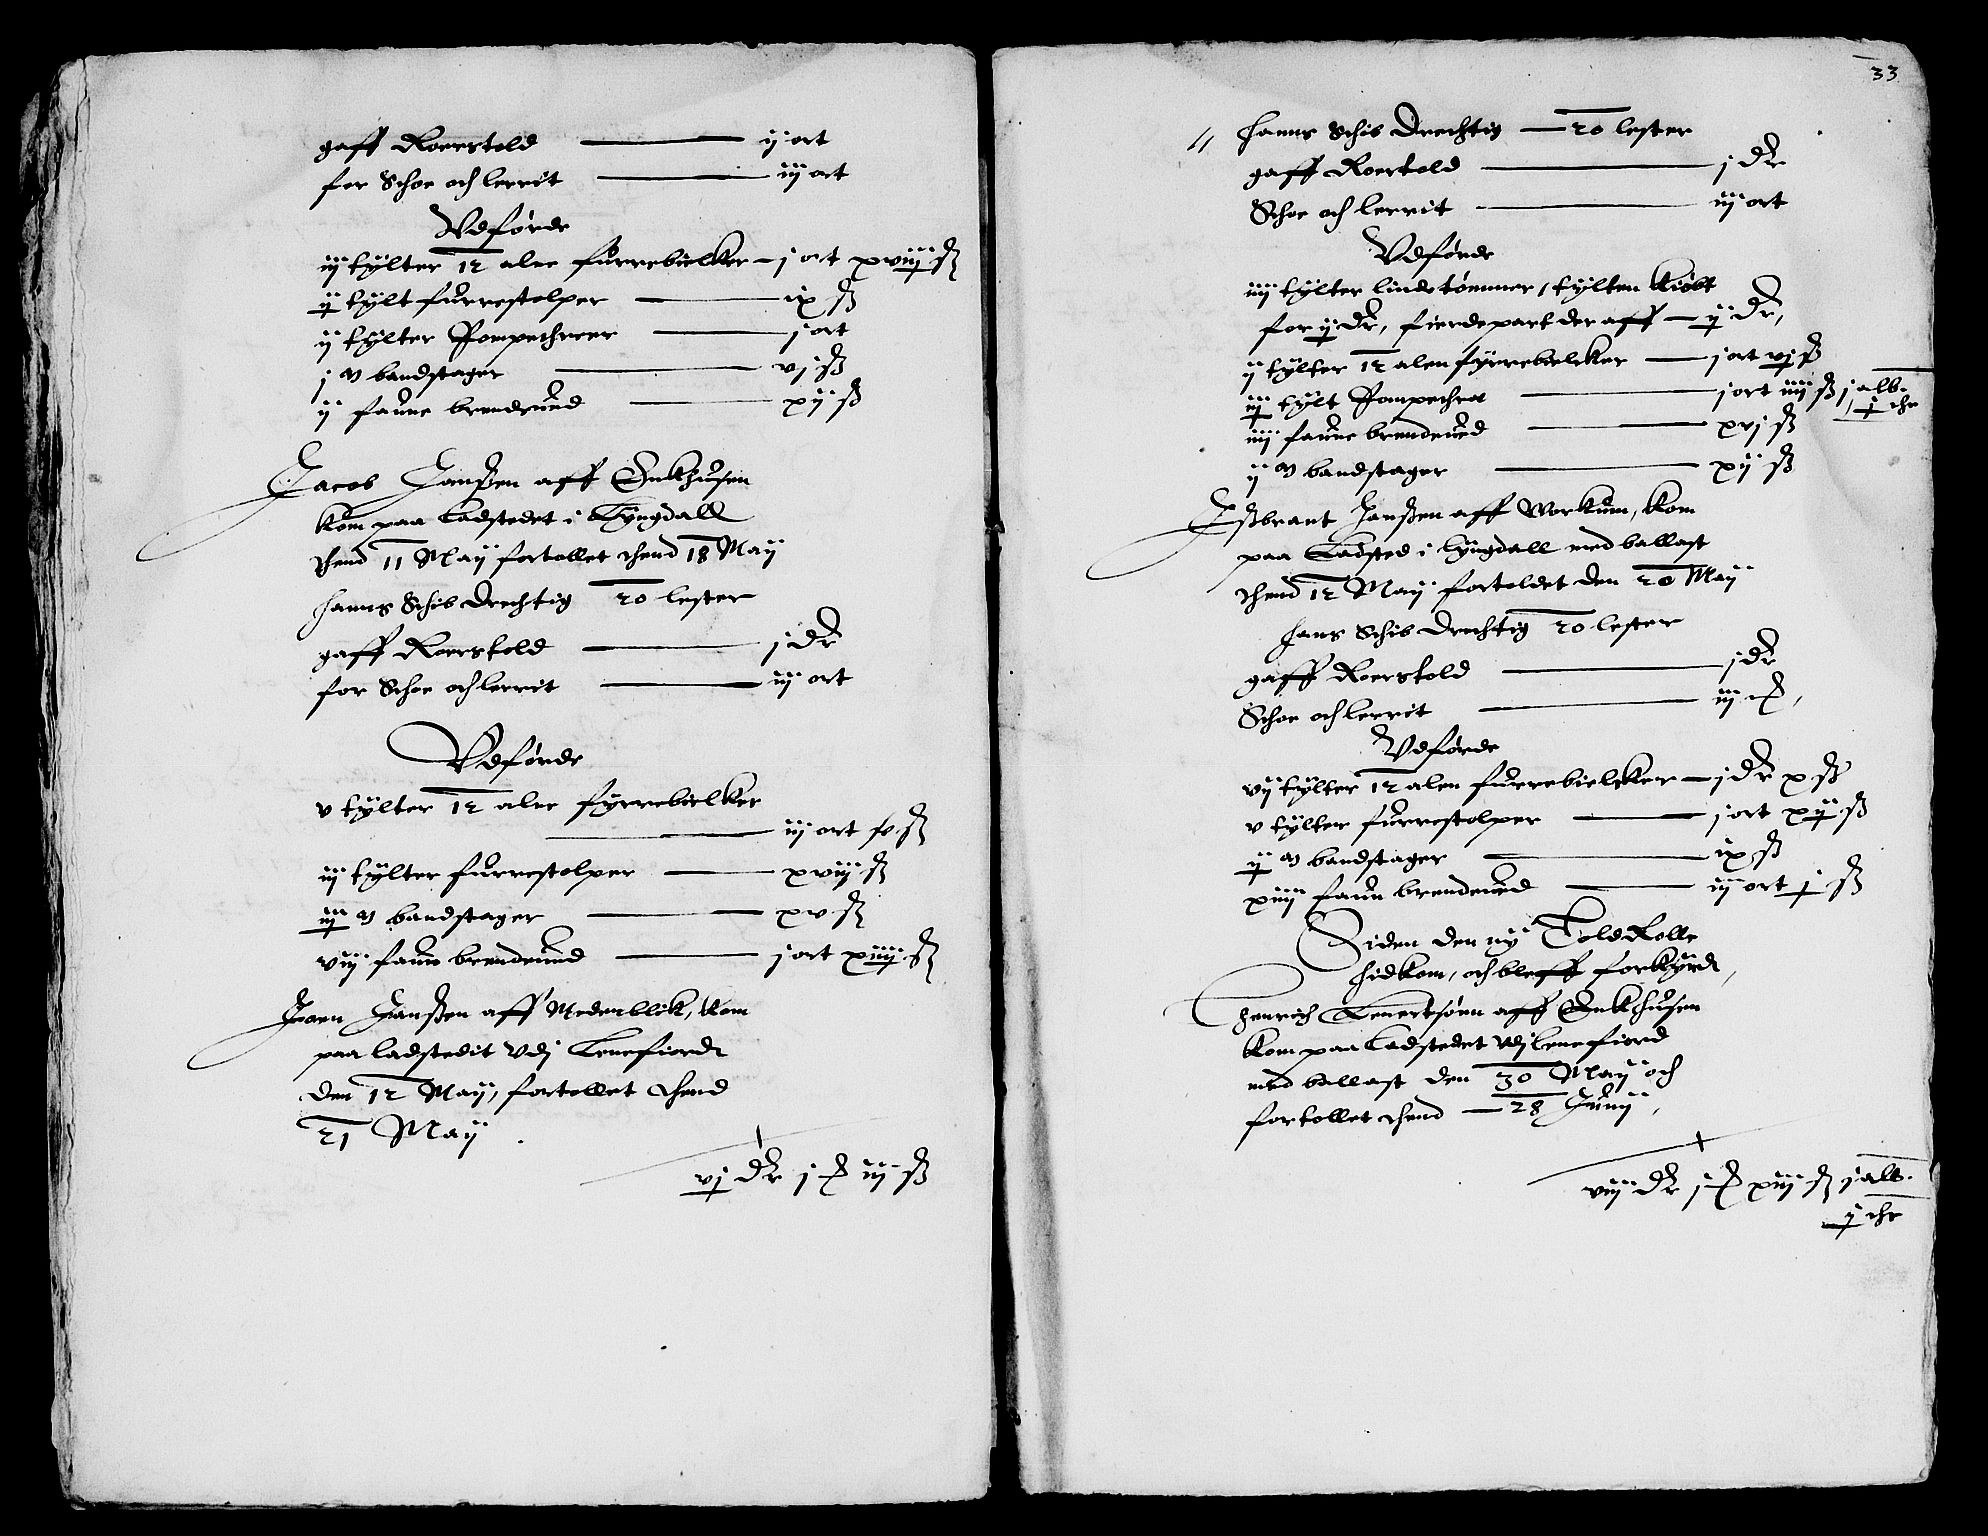 gaff Roerstold — ij ort
for Schoe och lerrit — iij ort
Vdførde
iij tylter 12 alne furrebielcker — j ort xviij ß
ij tylt furrestolper — ix ß
ij tylter Pompechreer — j ort
j c bandstager — vj ß
ij faune brendeued — xij ß
Jacob Janßen aff Enkhusen
kom paa Ladstedet i Lyngdall
thend 11 May fortollet thend 18 May
hanns Schib drechtig 20 lester
gaff Roerstold — j dr
for Schoe och lerrit — iij ort
Vdførde
v tylter 12 alne fyrrebielker
— iij ort ß
iij tylter furrestolper — xviij ß
iij c bandstager — xv ß
viij faun brendeued — j ort xiiij ß
Joen Janßen aff Medenblik, kom
paa ladstedit vdj Lenefiord
den 12 May, fortollet thend
21 May
vj dr j ort iij ß
33
hanns Schib Drechtig — 20 lester
gaff Roertold — j dr
Schoe och lerrit — iij ort
Vdførde
iiij tylter lindetømmer, tylten kiøbt
for ij dr, fierdepart der aff — ij dr,
ij tylter 12 alen fyrrebielcker — j ort vj ß
iij tylt Pompechre — j ort iiij ß j alb.
j chr
iiij faune brendeued — xvj ß
ij c bandstager — xij ß
Jßbrant Janßen aff Workum, kom
paa Ladsted i lyngdall med ballast
thend 12 May fortoldet den 20 May
hans Schib drechtig 20 lester
gaff Roerstold — j dr
Schoe och lerrit — iij ort,
Vdførde
vij tylter 12 alen furrebielcker — j dr x ß
v tylter furrestolper — j ort xij ß
ij c bandstager — ix ß
xiiij faun brendeued — iij ort j ß
Siden den ny Told Rolle
hidkom, och bleff forkyndt,
Henrich Lenertsøen aff Enkhusen
kom paa Ladstedet vdj lenefiord
med ballast den 30 May och
fortollet thend — 28 Junij,
viij dr j ort xiij ß j alb.
j chr